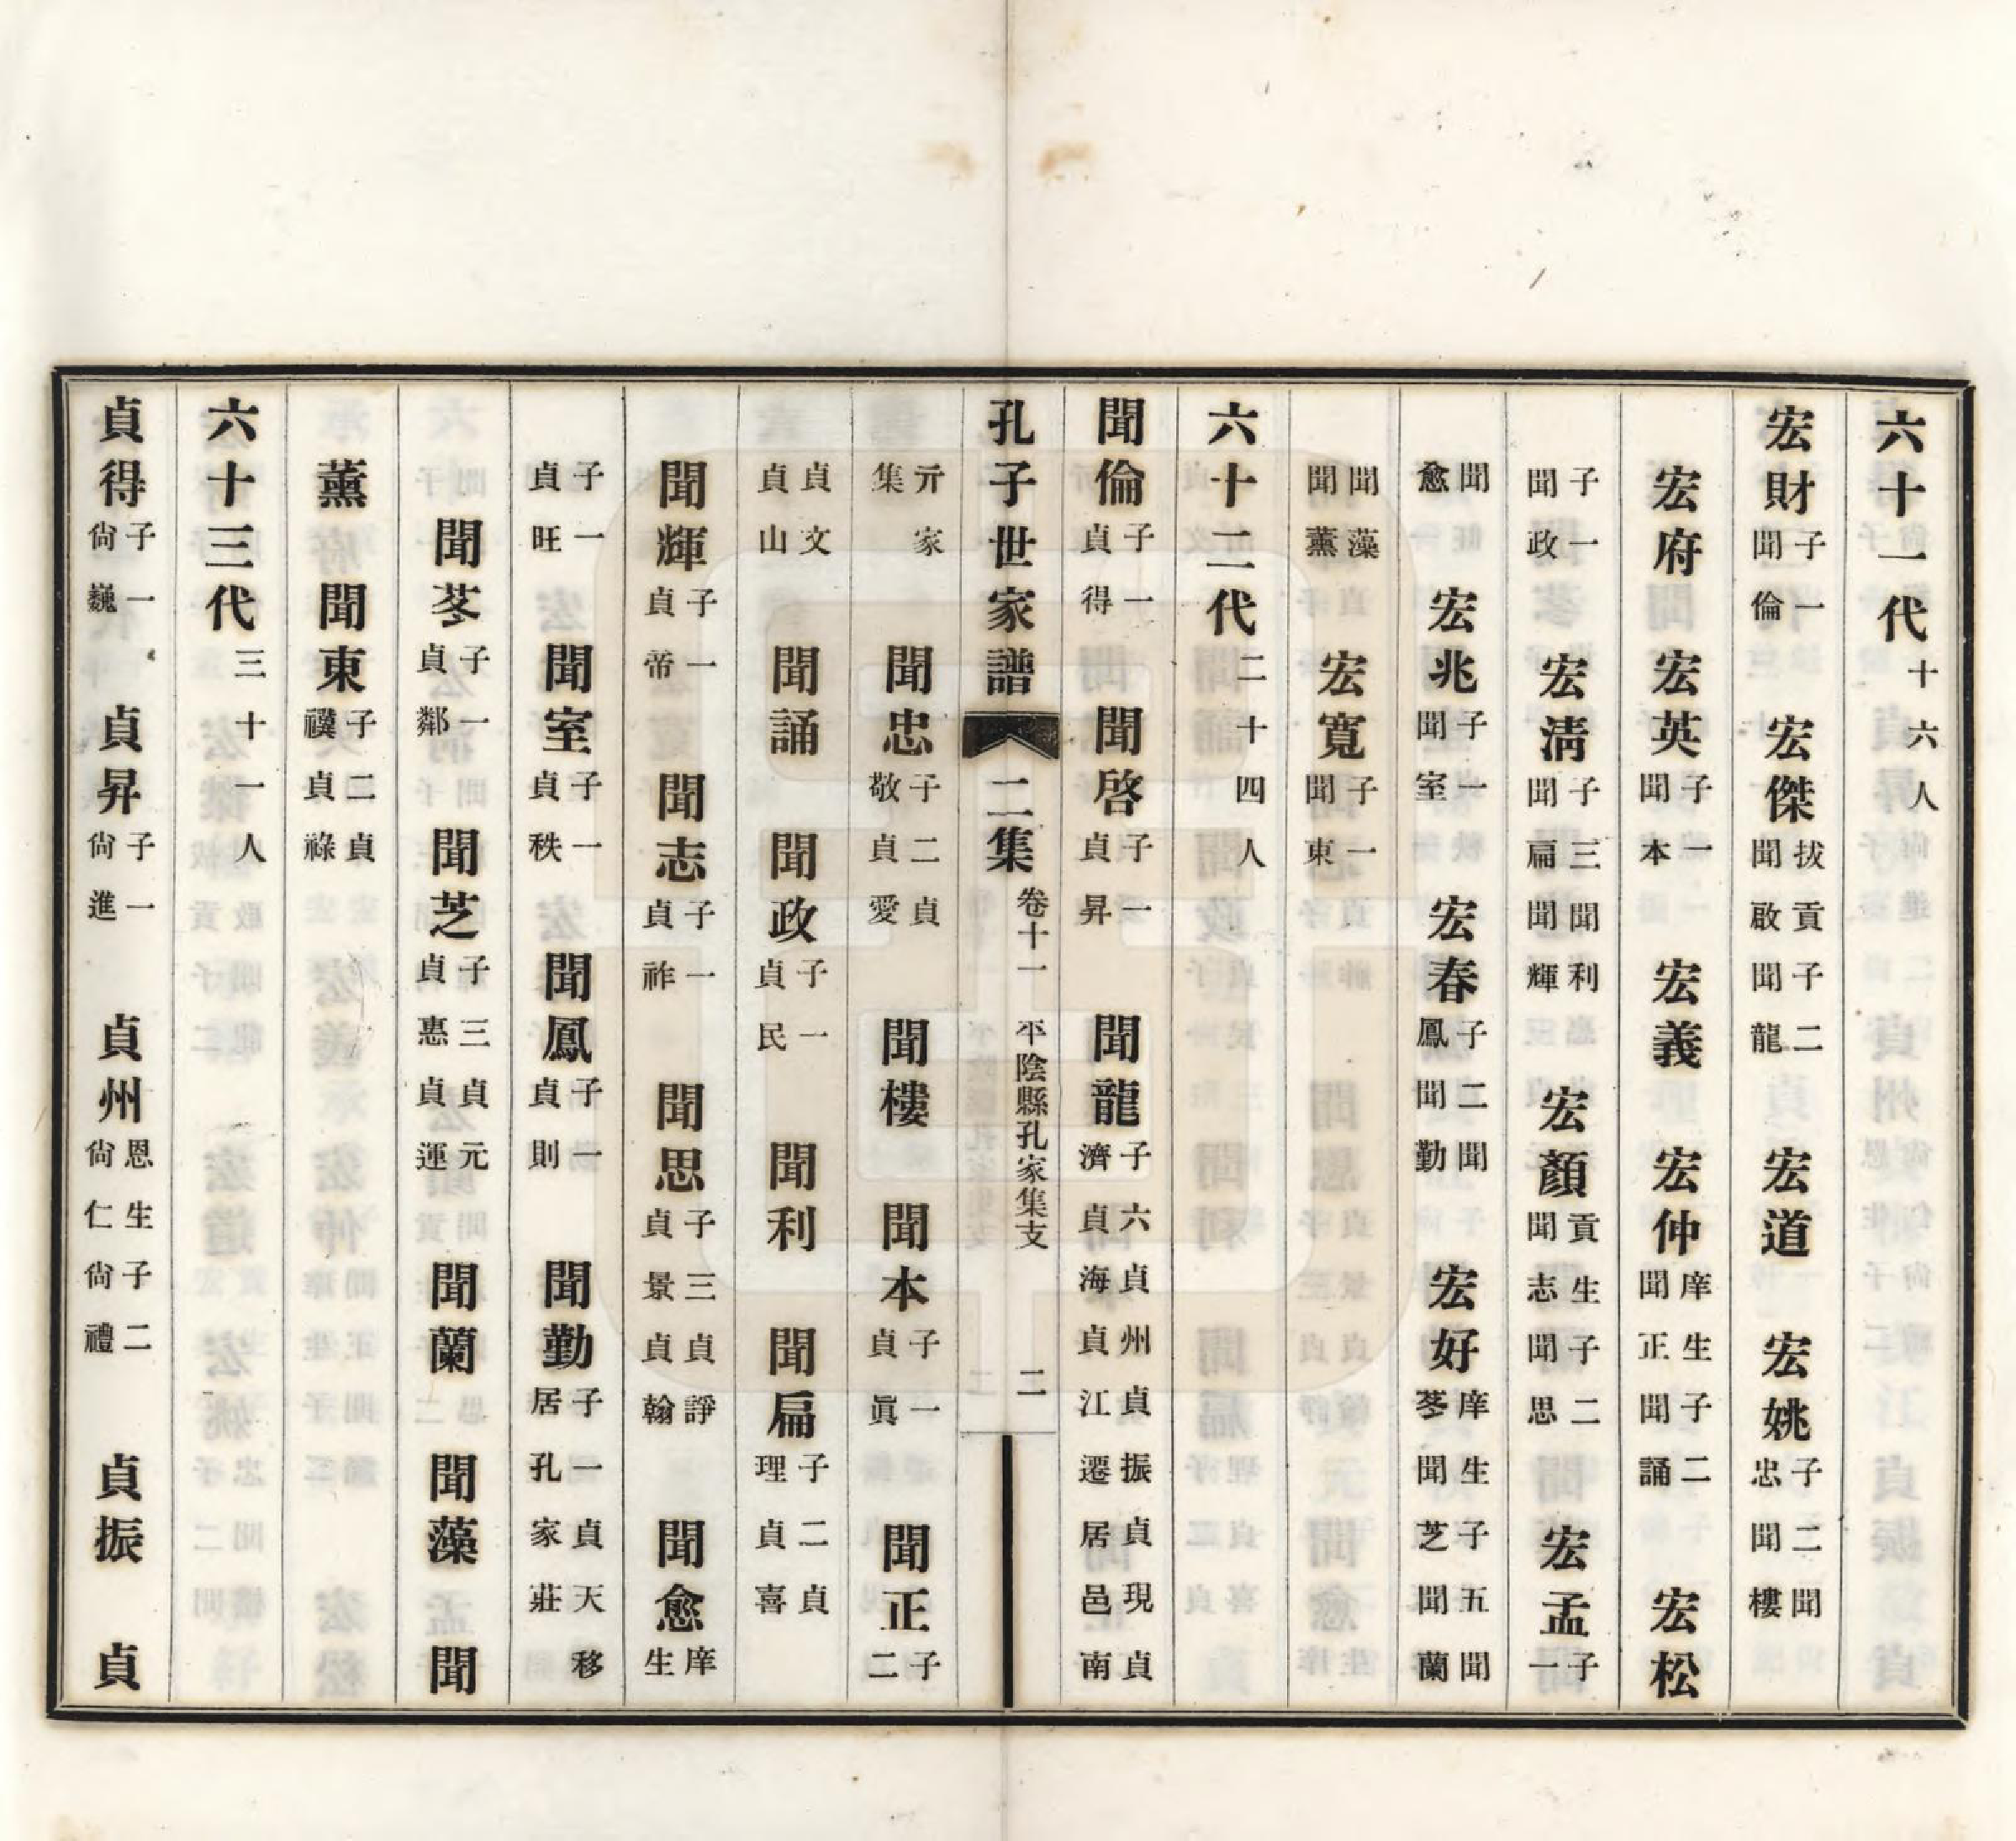 六十一代十六人
宏財子一聞倫　宏傑拔貢子二聞啟聞龍　宏道　宏姚子二聞忠聞樓
宏府　宏英子一聞本　宏義　宏仲庠生子二聞正聞誦　宏松
子一聞政　宏淸子三聞利聞扁聞輝　宏顏貢生子二聞志聞思　宏孟子一
聞愈　宏兆子一聞室　宏春子二聞鳳聞勤　宏好庠生子五聞苳聞芝聞蘭
聞藻聞薰　宏寬子一聞東
六十二代二十四人
聞倫子一貞得　聞啓子一貞昇　聞龍子六貞州貞振貞現貞濟貞海貞江遷居邑南
孔子世家譜　二集　卷十一　平陰縣孔家集支　二
亓家集　聞忠子二貞敬貞愛　聞樓　聞本子一貞眞　聞正子二
貞文貞山　聞誦　聞政子一貞民　聞利　聞扁子二貞理貞喜
聞輝子一貞帝　聞志子一貞祚　聞思子三貞諍貞景貞翰　聞愈庠生
子一貞旺　聞室子一貞秩　聞鳳子一貞則　聞勤子一貞天移居孔家莊
聞苳子一貞鄰　聞芝子三貞元貞惠貞運　聞蘭　聞藻　聞
薰　聞東子二貞禩貞祿
六十三代三十一人
貞得子一尙巍　貞昇子一尙進　貞州恩生子二尙仁尙禮　貞振　貞